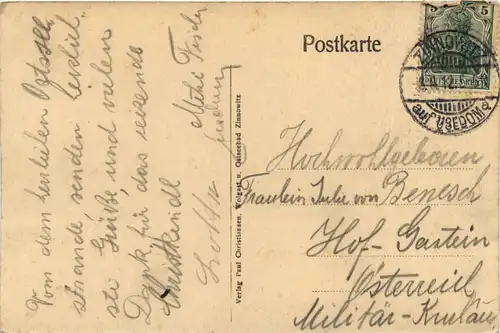 Vom dem herrlichen Ostsee-
strande senden herzlich-
ste Grüße und vielen
Dank für das reizende
Christkindl
Mitzi Fischer
Lotte
Verlag Paul Christiansen, Wolgast u. Ostseebad Zinnowitz
Postkarte
5
ZINNOWITZ
auf USEDOM
Hochwohlgeboren
Fräulein Julie von Benesch
Hof-Gastein
Österreich
Militär-Kurhaus